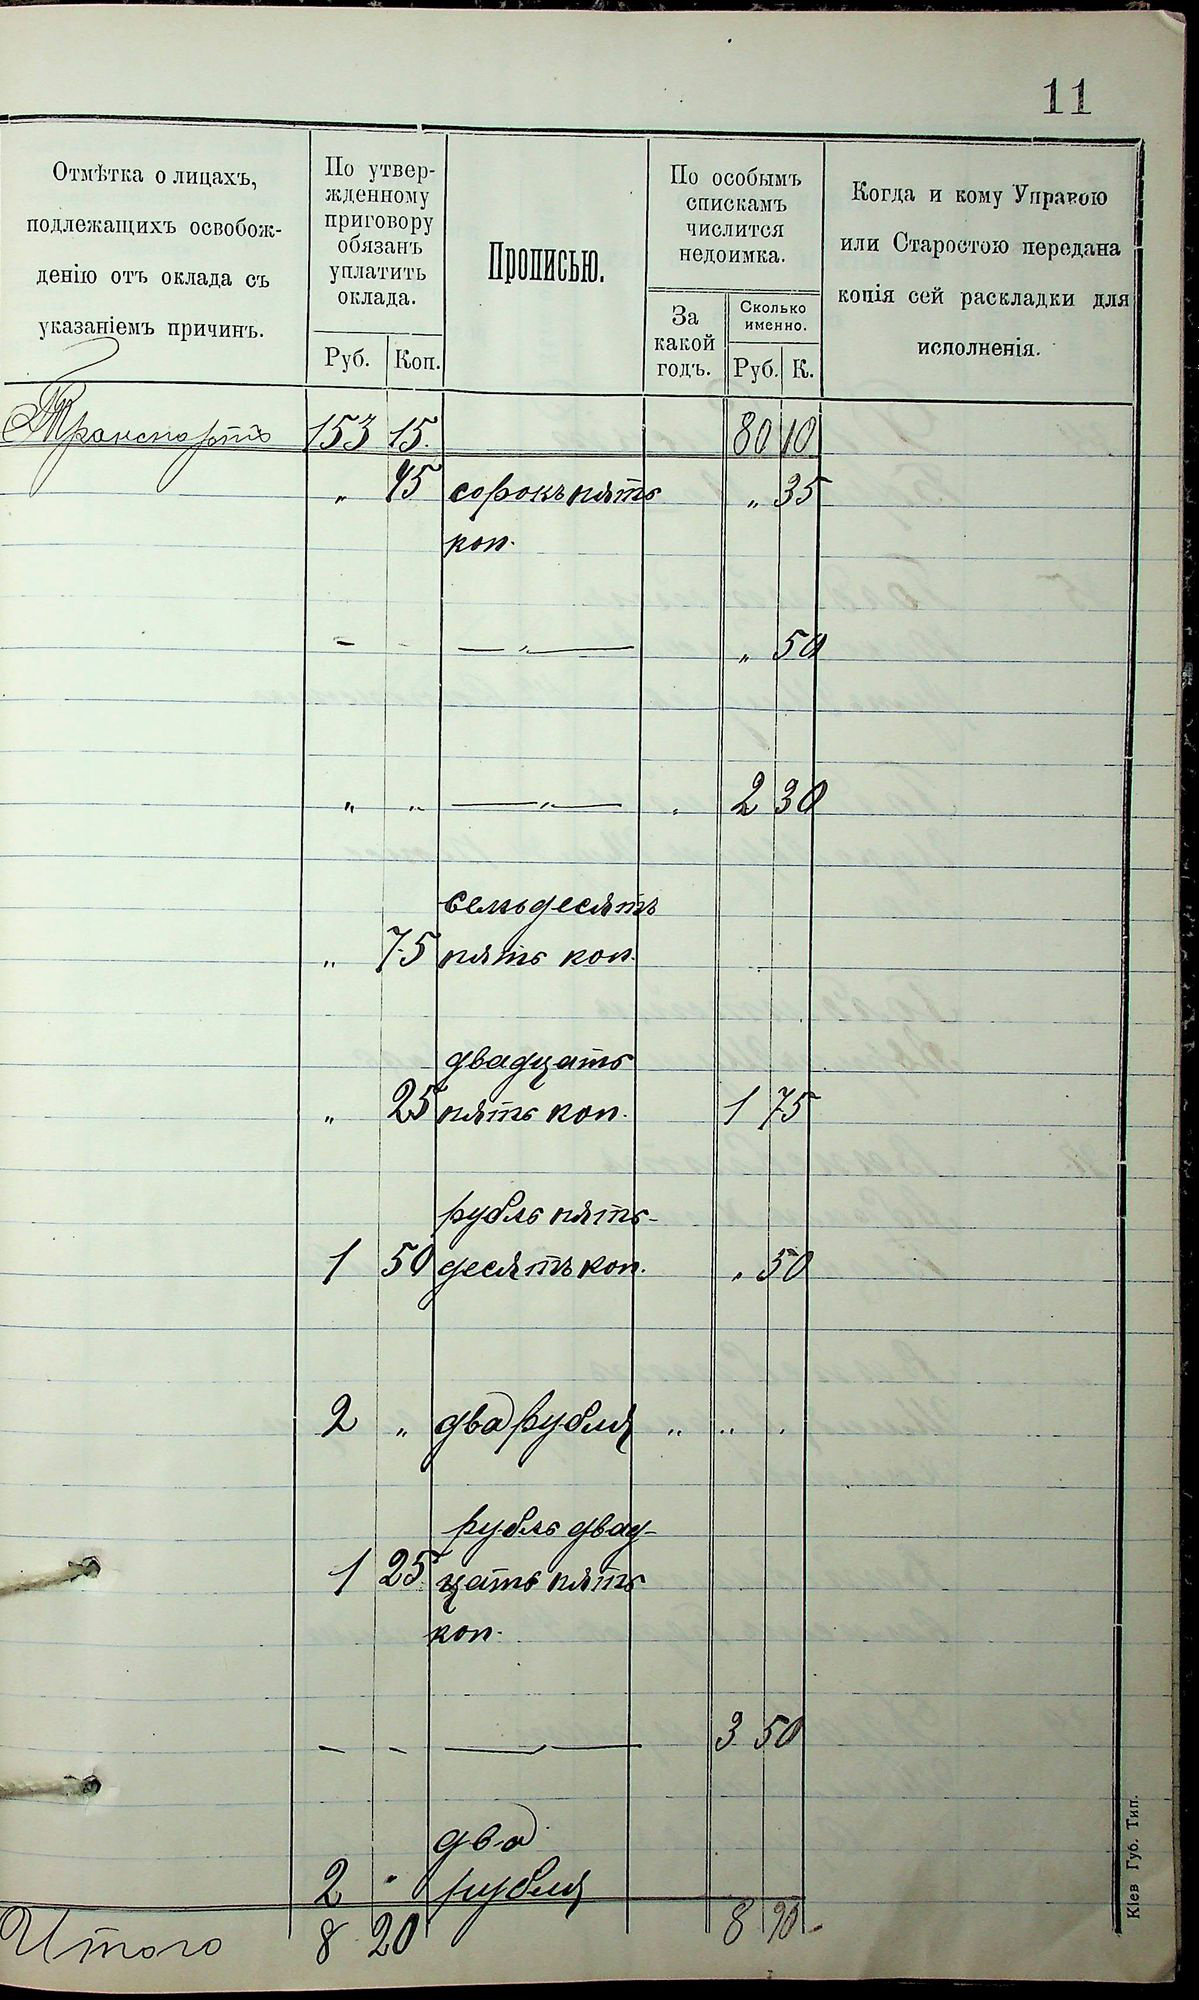 11
Отмѣтка о лицахъ,
подлежащихъ освобож-
денію отъ оклада съ
указаніемъ причинъ.
По утвер-
жденному
приговору
обязанъ
уплатить
оклада.
Руб. Коп.
Прописью.
По особымъ
спискамъ
числится
недоимка.
За
какой
годъ.
Сколько
именно.
Руб. К.
Когда и кому Управою
или Старостою передана
копія сей раскладки для
исполненія.
Транспортъ 153 15. 80 10
" 45 сорокъ пять " 35
коп.
- - — " — " 50
" " — " — " 2 30
семьдесятъ
" 75 пять коп.
двадцать
" 25 пять коп. 1 75
рубль пять-
1 50 десятъ коп. " 50
2 " два рубля " " "
рубль двад-
1 25 цать пять
коп.
- - — " — 3 50
два
2 " рубля
Итого 8 20 8 90
Кіев Губ. Тип.